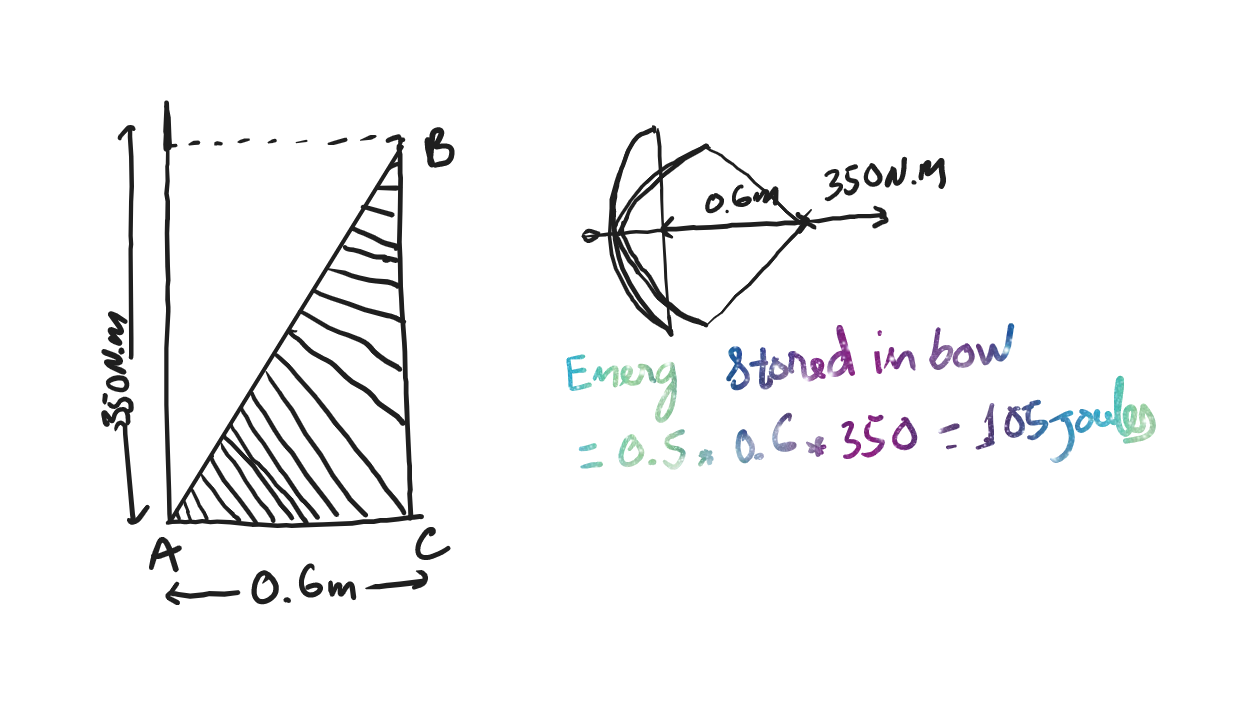 B
350N.M
0.6m
350N.M
A
C
0.6m
Energ stored in bow
= 0.5 * 0.6 * 350 = 105 joules